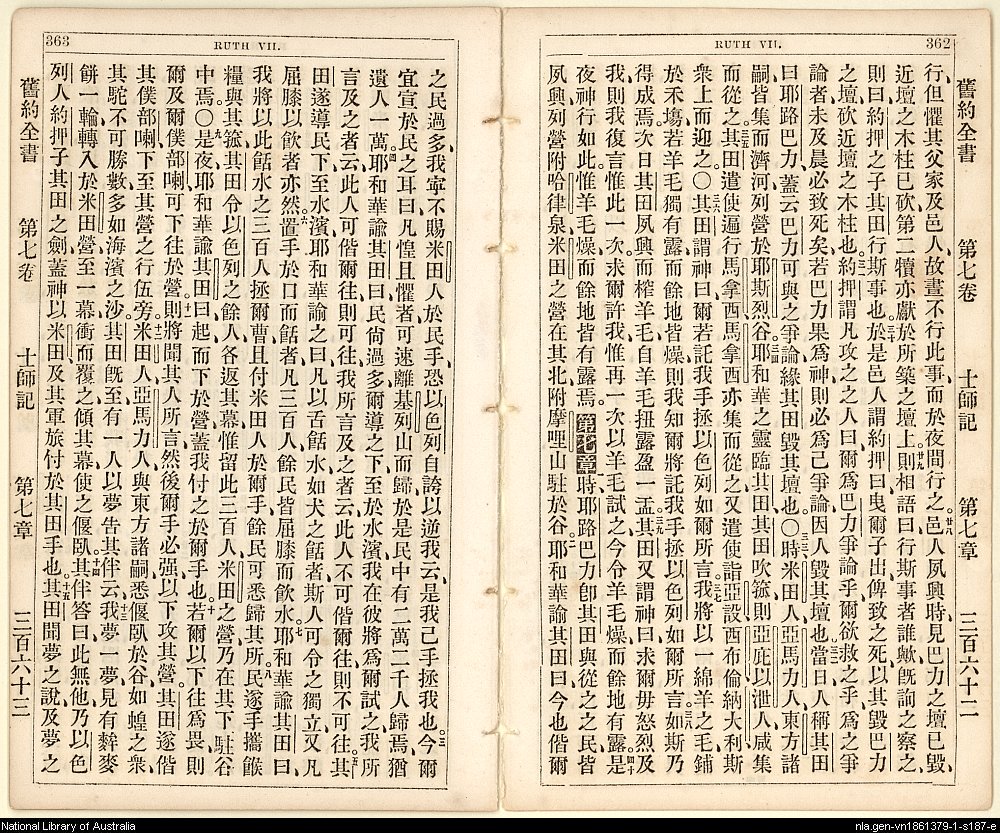 RUTH VII. 362
舊約全書 第七卷 士師記 第七章 三百六十二
行、但懼其父家及邑人、故晝不行此事、而於夜間行之。廿八邑人夙興時、見巴力之壇已毀、
近壇之木柱已砍、第二犢亦獻於所築之壇上、廿九則相語曰、行斯事者誰歟、旣詢之察之、
則曰、約押之子其田行斯事也。三十於是邑人謂約押曰、曳爾子出、俾致之死、以其毀巴力
之壇、砍近壇之木柱也。三一約押謂凡攻之之人曰、爾爲巴力爭論乎、爾欲救之乎、爲之爭
論者、未及晨必致死矣、若巴力果爲神、則必爲己爭論、因人毀其壇也。三二當日人稱其田
曰耶路巴力、蓋云、巴力可與之爭論、緣其田毀其壇也。〇三三時米田人、亞馬力人、東方諸
嗣、皆集而濟河、列營於耶斯烈谷。三四耶和華之靈臨其田、其田吹箛、則亞庇以泄人咸集
而從之。三五其田遣使遍行馬拿西、馬拿西亦集而從之、又遣使詣亞設、西布倫、納大利、斯
衆上而迎之。〇三六其田謂神曰、爾若託我手拯以色列、如爾所言、三七我將以一綿羊之毛鋪
於禾塲、若羊毛獨有露、而餘地皆燥、則我知爾將託我手拯以色列、如爾所言。三八如斯乃
得成焉、次日其田夙興、而榨羊毛、自羊毛扭露盈一盂。三九其田又謂神曰、求爾毋怒烈及
我、則我復言惟此一次、求爾許我惟再一次、以羊毛試之、今令羊毛燥、而餘地有露。四十是
夜神行如此、惟羊毛燥、而餘地皆有露焉。第七章時耶路巴力、卽其田、與從之之民、皆
夙興、列營附哈律泉、米田之營在其北、附摩哩山、駐於谷。二耶和華諭其田曰、今也偕爾
363 RUTH VII.
之民過多、我寧不賜米田人於民手、恐以色列自誇以逆我云、是我己手拯我也。三今爾
宜宣於民之耳曰、凡惶且懼者、可速離基列山而歸、於是民中有二萬二千人歸焉、猶
遺人一萬。四耶和華諭其田曰、民尙過多、爾導之下至於水濱、我在彼將爲爾試之、我所
言及之者云、此人可偕爾往、則可往、我所言及之者云、此人不可偕爾往、則不可往。五其
田遂導民下至水濱、耶和華諭之曰、凡以舌餂水、如犬之餂者、斯人可令之獨立、又凡
屈膝以飲者亦然。六置手於口而餂者、凡三百人、餘民皆屈膝而飲水。七耶和華諭其田曰、
我將以此餂水之三百人拯爾曹、且付米田人於爾手、餘民可悉歸其所。八民遂手攜餱
糧、與其箛、其田令以色列之餘人各返其幕、惟留此三百人、米田之營乃在其下、駐谷
中焉。〇九是夜耶和華諭其田曰、起而下於營、蓋我付之於爾手也。十若爾以下往爲畏、則
爾及爾僕部喇可下往於營、十一則將聞其人所言、然後爾手必强、以下攻其營。其田遂偕
其僕部喇下、至其營之行伍旁。十二米田人、亞馬力人、與東方諸嗣、悉偃臥於谷、如蝗之衆、
其駝不可勝數、多如海濱之沙。十三其田旣至、有一人以夢告其伴云、我夢一夢、見有麰麥
餅一、輪轉入於米田營、至一幕、衝而覆之、傾其幕、使之偃臥。十四其伴答曰、此無他、乃以色
列人約押子其田之劍、蓋神以米田及其軍旅付於其田手也。十五其田聞夢之說、及夢之
舊約全書 第七卷 士師記 第七章 三百六十三
National Library of Australia
nla.gen-vn1861379-1-s187-e